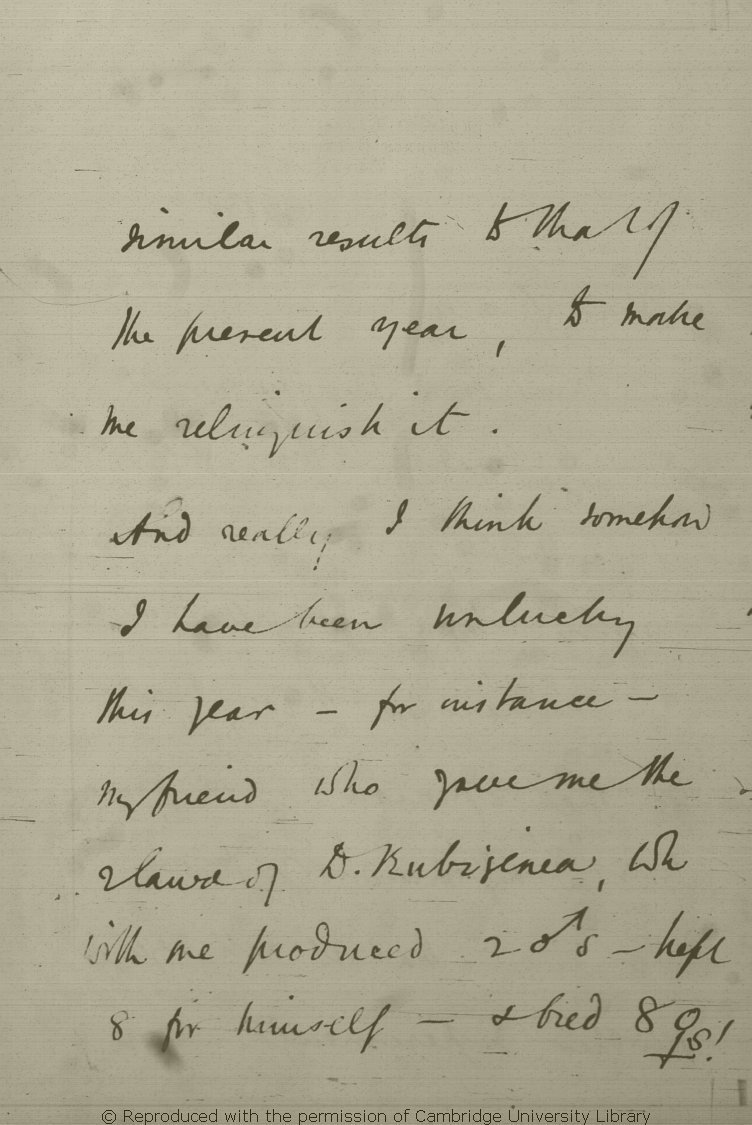 similar results to that of
the present year, to make
me relinquish it.
And really I think somehow
I have been unlucky
this year – for instance –
my friend who gave me the
2 larvæ of D. Rubiginea, wh
with me produced 2 ♂s – kept
8 for himself – & bred 8 ♀s!
© Reproduced with the permission of Cambridge University Library